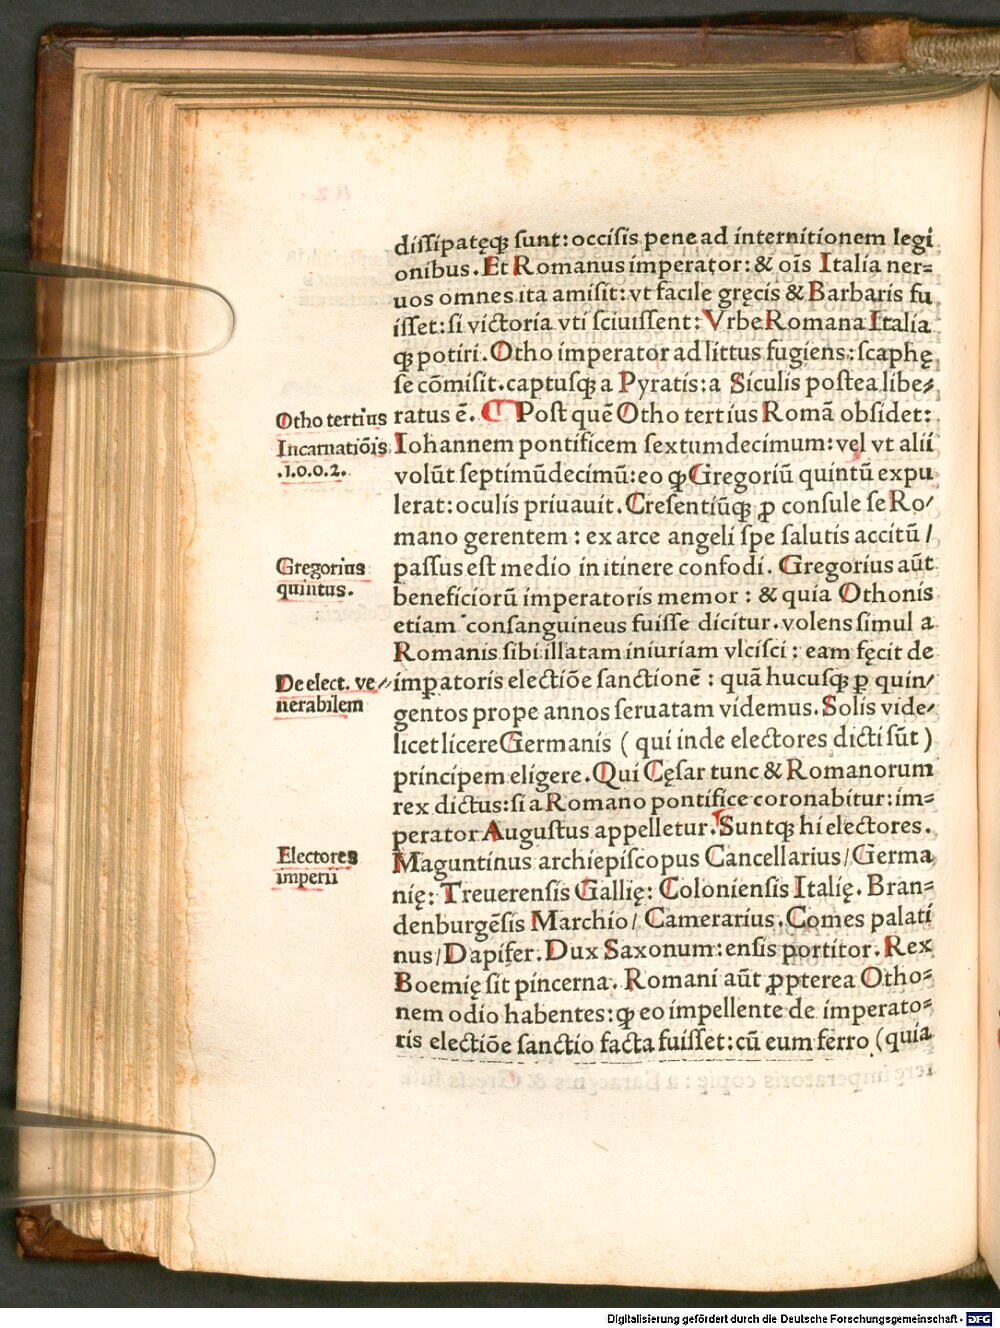 diſſipatęq; ſunt: occiſis pene ad internitionem legi
onibus. Et Romanus imperator: & oīs Italia ner⸗
uos omnes ita amiſit: vt facile gręcis & Barbaris fu
iſſet: ſi victoria vti ſciuiſſent: Vrbe Romana Italia
q; potiri. Otho imperator ad littus fugiens: ſcaphę
ſe cōmiſit. captuſq; a Pyratis: a Siculis poſtea libe⸗
Otho tertius
ratus ē. ¶ Poſt quē Otho tertius Romā obſidet:
Incarnatiōis
.1.0.0.2.
Iohannem pontificem ſextumdecimum: vel vt alii
volūt ſeptimūdecimū: eo ꝙ Gregoriū quintū expu
lerat: oculis priuauit. Creſentiūq; ꝓ conſule ſe Ro/
mano gerentem: ex arce angeli ſpe ſalutis accitū /
Gregorius
quintus.
paſſus eſt medio in itinere confodi. Gregorius aūt
beneficiorū imperatoris memor: & quia Othonis
etiam conſanguineus fuiſſe dicitur. volens ſimul a
Romanis ſibi illatam iniuriam vlciſci: eam fęcit de
De elect. ve⸗
nerabilem
imꝑatoris electiōe ſanctionē: quā hucuſq; ꝑ quin/
gentos prope annos ſeruatam videmus. Solis vide/
licet licere Germanis (qui inde electores dicti ſūt)
principem eligere. Qui Cęſar tunc & Romanorum
rex dictus: ſi a Romano pontifice coronabitur: im⸗
perator Auguſtus appelletur. Suntq; hi electores.
Electores
imperii
Maguntinus archiepiſcopus Cancellarius/ Germa
nię: Treuerenſis Gallię: Colonienſis Italię. Bran⸗
denburgēſis Marchio/ Camerarius. Comes palati
nus/ Dapifer. Dux Saxonum: enſis portitor. Rex
Boemię ſit pincerna. Romani aūt ꝓpterea Otho⸗
nem odio habentes: ꝙ eo impellente de imperato⸗
ris electiōe ſanctio facta fuiſſet: cū eum ferro (quia
Digitalisierung gefördert durch die Deutsche Forschungsgemeinschaft - DFG